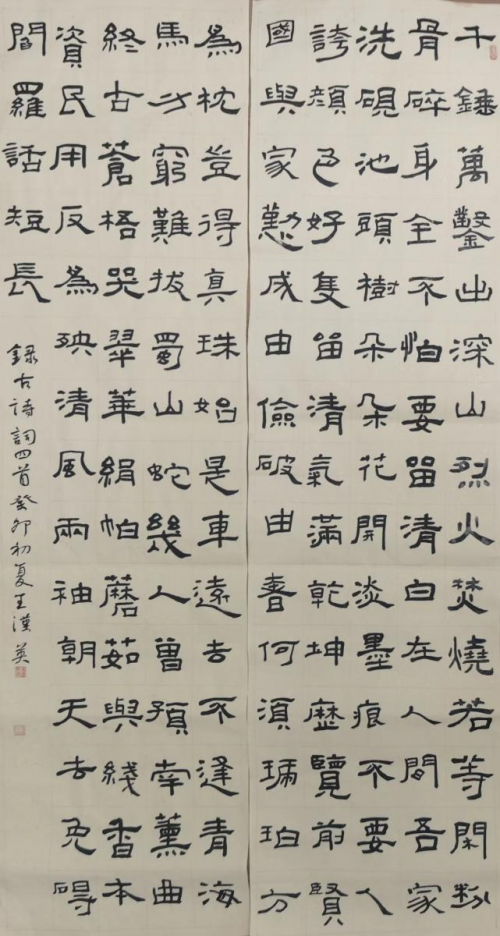 千錘萬鑿出深山烈火焚燒若等閑粉
骨碎身全不怕要留清白在人間吾家
洗硯池頭樹朵朵花開淡墨痕不要人
誇顏色好隻留清氣滿乾坤歷覽前賢
國與家懃成由儉破由奢何須琥珀方
為枕豈得真珠始是車遠去不逢青海
馬力窮難拔蜀山蛇幾人曾預南薰曲
終古蒼梧哭翠華絹帕蘑茹與綫香本
資民用反為殃清風兩袖朝天去免碍
閻羅話短長
錄古詩詞四首癸卯初夏王漢英